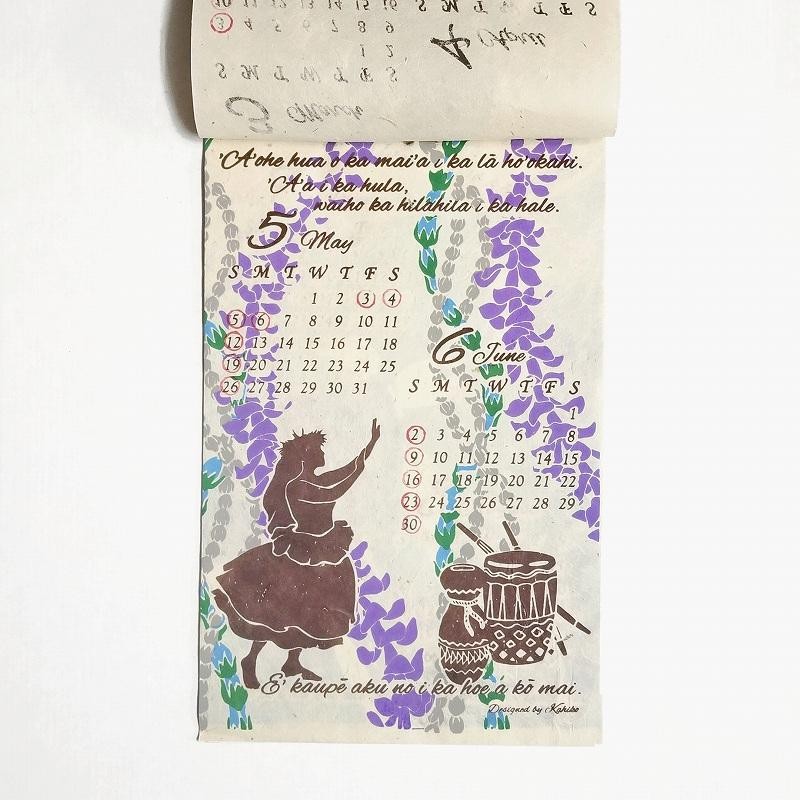 3 March
S M T W T F S
1 2
3 4 5 6 7 8 9
10 11 12 13 14 15 16
4 April
S M T W T F S
'A'ohe hua o ka mai'a i ka lā ho'okahi.
'A'a i ka hula,
waiho ka hilahila i ka hale.
5 May
S M T W T F S
1 2 3 4
5 6 7 8 9 10 11
12 13 14 15 16 17 18
19 20 21 22 23 24 25
26 27 28 29 30 31
6 June
S M T W T F S
1
2 3 4 5 6 7 8
9 10 11 12 13 14 15
16 17 18 19 20 21 22
23 24 25 26 27 28 29
30
E' kaupē aku no i ka hoe a kō mai.
Designed by Kahiko